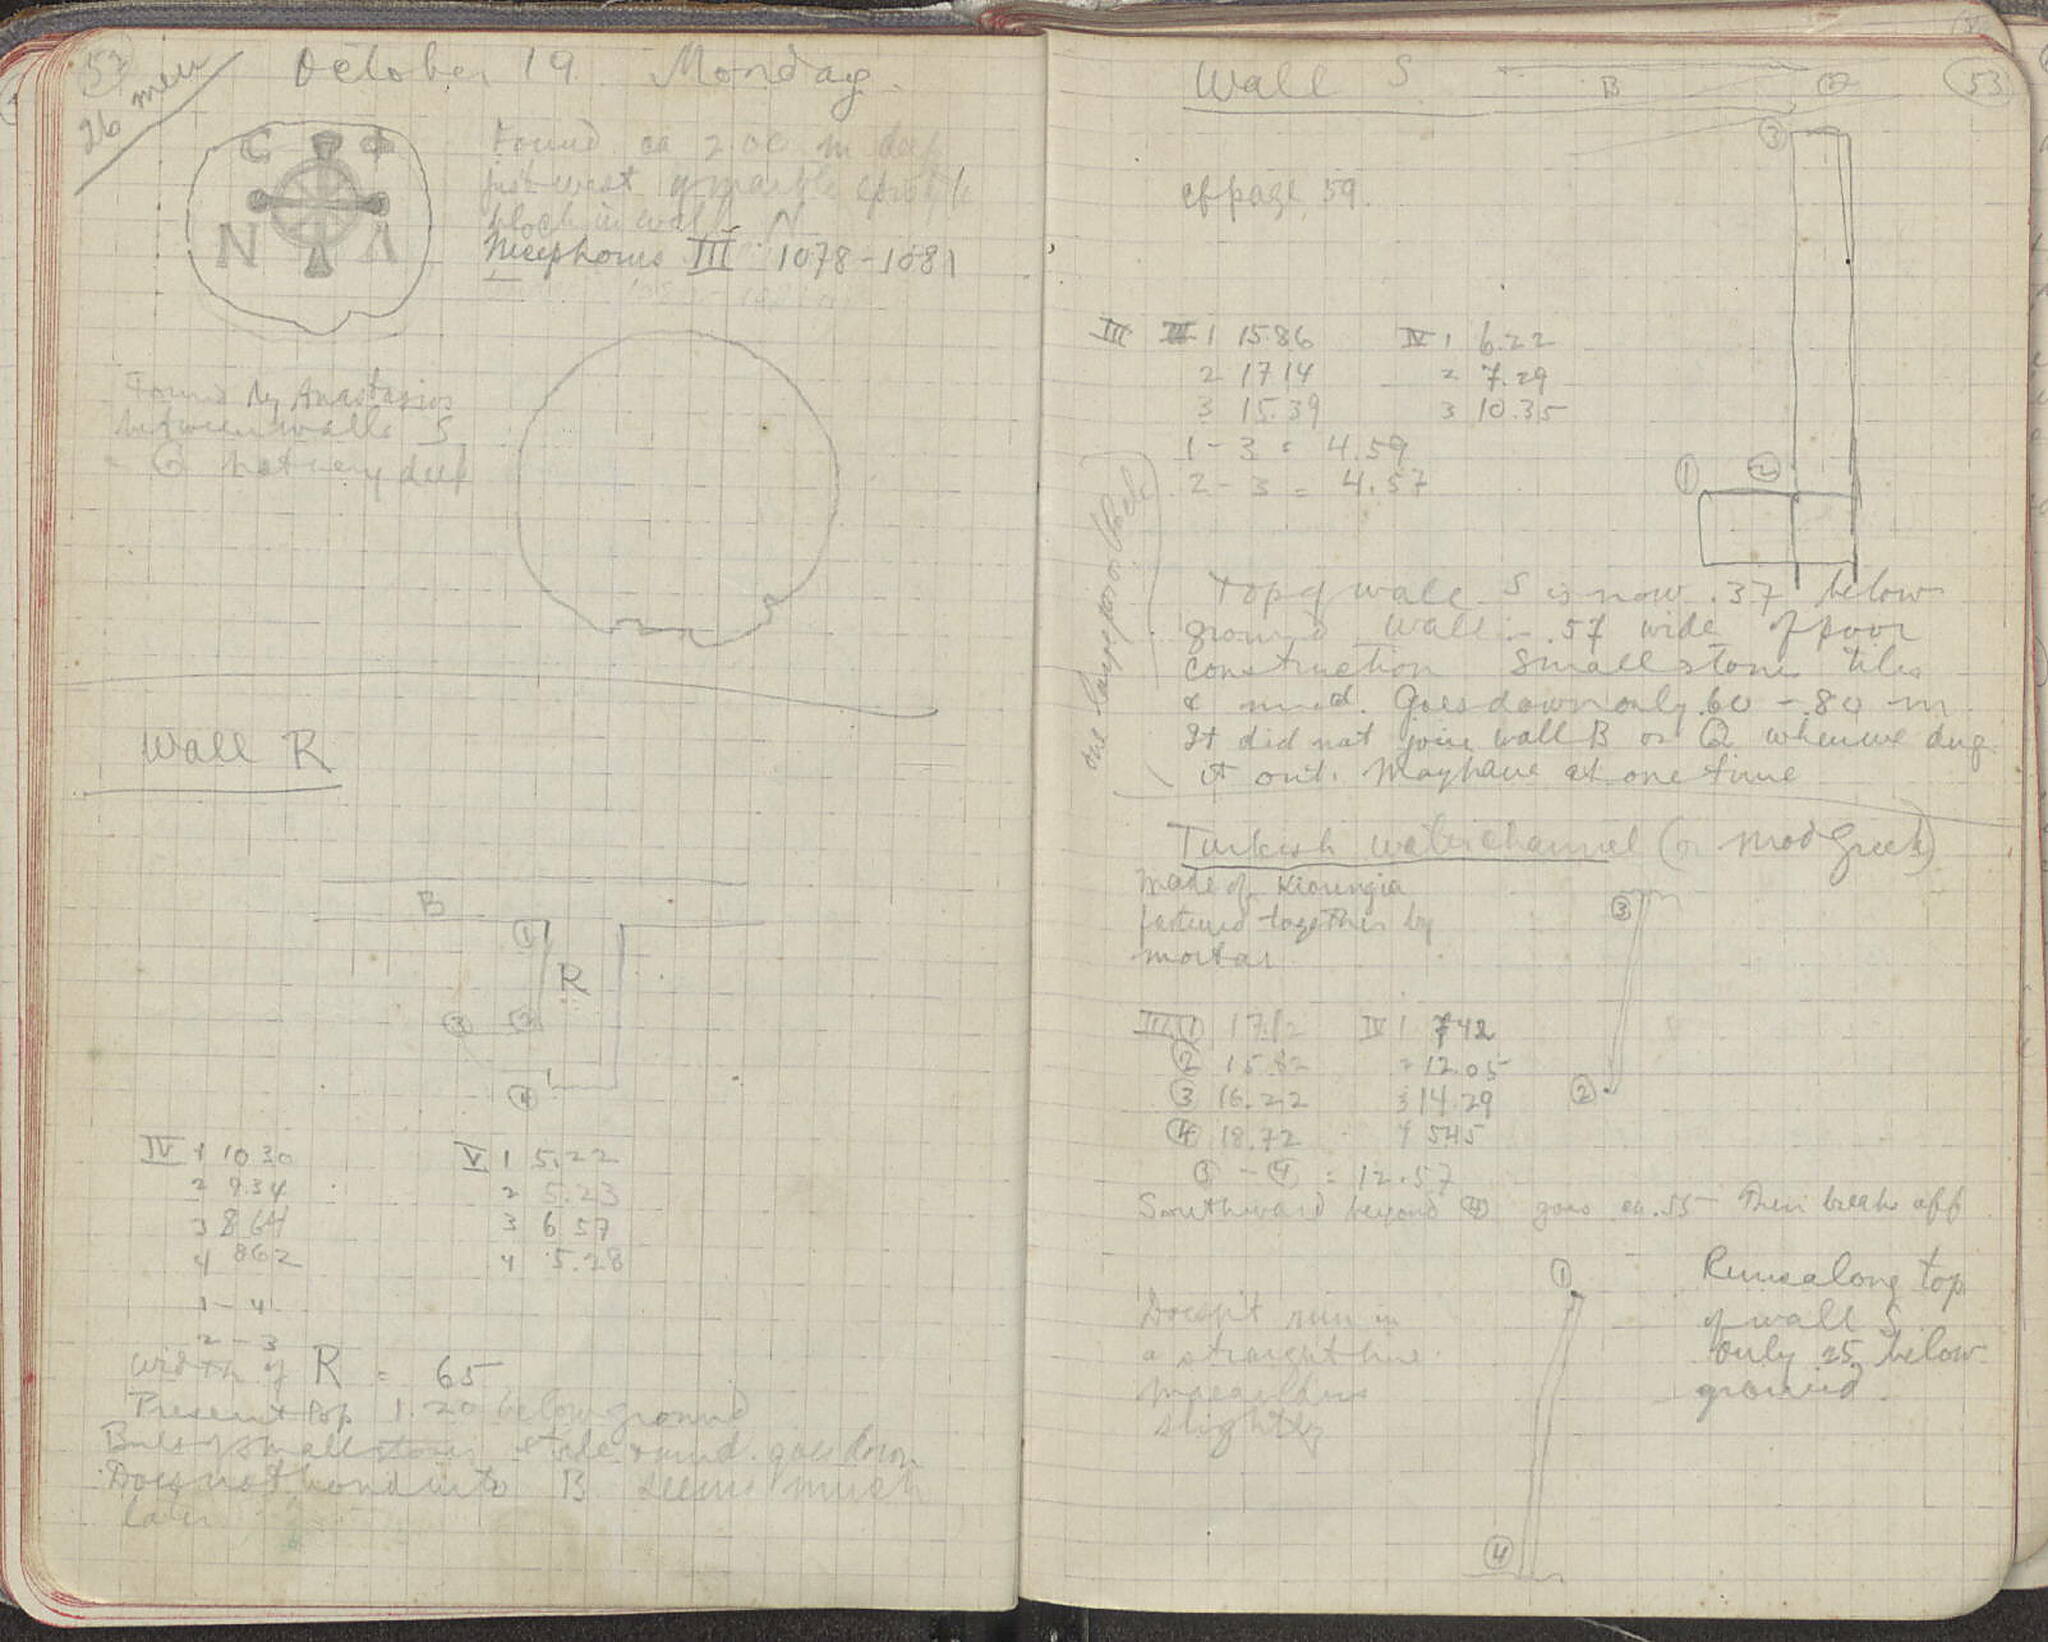 52
26 men
October 19 Monday
C Φ
N Δ
Found ca 2.00 m deep
just west of marble
block in wall N
Nicephorus III 1078-1081
Found by Anastasios
between walls S
" Q not very deep
Wall R
B
①
R
③ ②
④
IV 1 10 30
2 9.34
3 8 64
4 862
1 - 4
2 - 3
V 1 5.22
2 5.23
3 6 57
4 5.28
width of R = 65
Present top 1.20 below ground
Built of small stones goes down
Does not bond into B seems much
later
53
Wall S
B Q
③
cf page 59.
III 1 15.86
2 17 14
3 15.39
IV 1 6.22
2 7.29
3 10.35
1 - 3 = 4.59
2 - 3 = 4.57
① ②
one large poros block
Top of wall S is now .37 below
ground wall - .57 wide of poor
construction small stones tiles
& mud. Goes down only .60 - .80 m
It did not join wall B or Q when we dug
it out. May have at one time
Turkish water channel (or mod Greek)
made of Kioungia
fastened together by
mortar
③
②
III ① 17.12
② 15.82
③ 16.22
④ 18.72
IV 1 742
2 12.05
3 14.29
4 545
③ - ④ = 12.57
Southward beyond ④ goes ca .55 Then breaks off
①
Doesn't run in
a straight line
slightly
Runs along top
of wall S.
Only .25 below
ground.
④